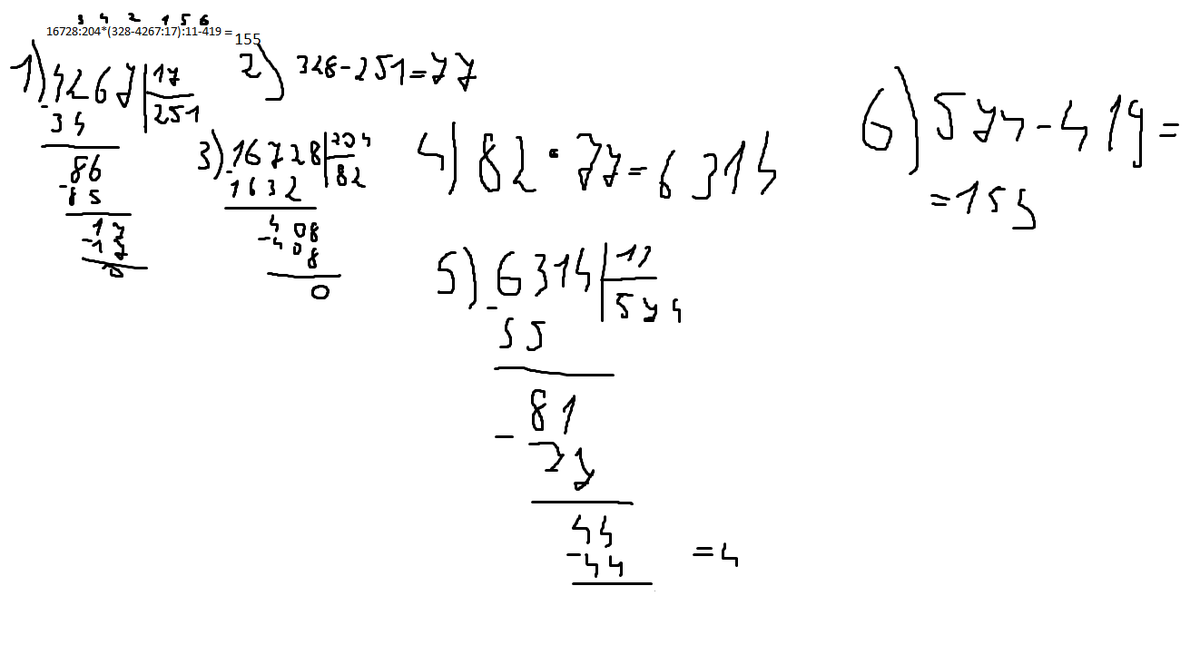 3 4 2 1 5 6
16728:204*(328-4267:17):11-419 = 155
1) 4267 | 17
- 34 251
86
- 85
17
- 17
0
2) 328-251=77
3) 16728 | 204
- 1632 82
408
- 408
0
4) 82 · 77 = 6314
5) 6314 | 11
- 55 574
81
- 77
44
- 44 = 4
6) 574 - 419 =
= 155